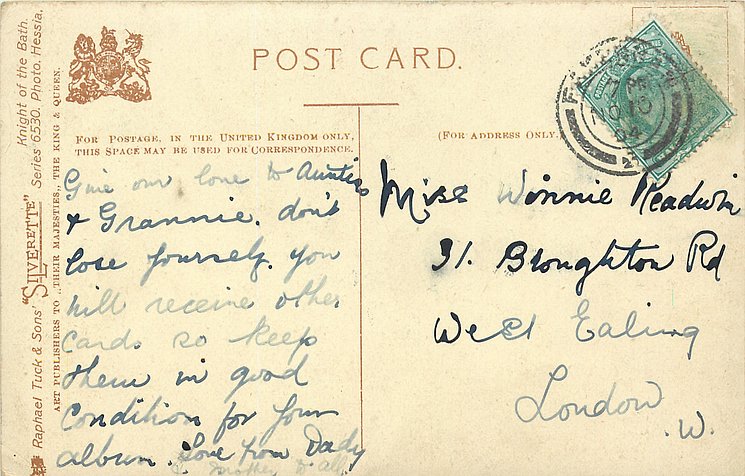 POST CARD.
FOR POSTAGE, IN THE UNITED KINGDOM ONLY,
THIS SPACE MAY BE USED FOR CORRESPONDENCE.
(FOR ADDRESS ONLY.)
Give our love to Aunties
& Grannie. don't
lose yourself. you
will receive other
Cards so keep
them in good
Condition for your
album. Love from Dady
mother & all
Miss Winnie Readwin
31. Broughton Rd
West Ealing
London
W.
Raphael Tuck & Sons' "SILVERETTE" Knight of the Bath.
Series 6530. Photo. Hessia,
ART PUBLISHERS TO "THEIR MAJESTIES," THE KING & QUEEN.
NO 10
04